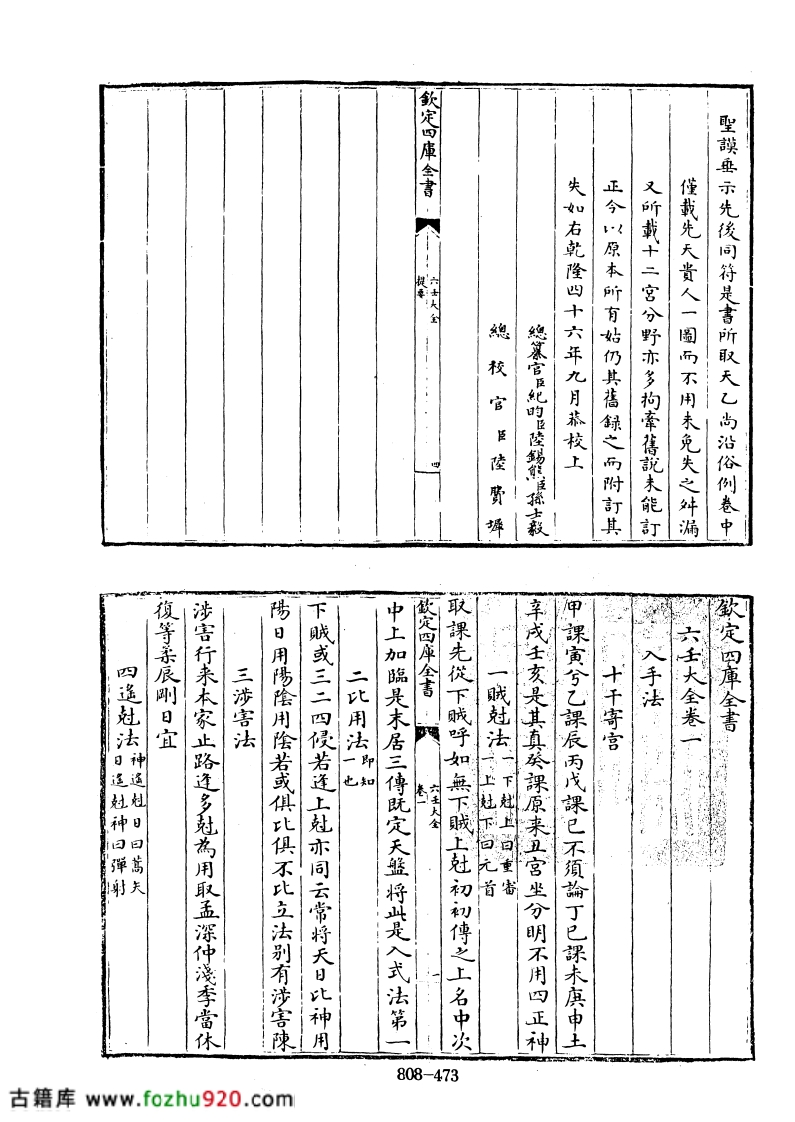 聖謨垂示先後同符是書所取天乙尚沿俗例卷中
僅載先天貴人一圖而不用未免失之舛漏
又所載十二宮分野亦多拘牽舊說未能訂
正今以原本所有姑仍其舊録之而附訂其
失如右乾隆四十六年九月恭校上
總纂官臣紀昀臣陸錫熊臣孫士毅
總校官臣陸費墀
欽定四庫全書
六壬大全
提要
四
欽定四庫全書
六壬大全卷一
入手法
十干寄宮
甲課寅兮乙課辰丙戊課巳不須論丁巳課未庚申土
辛戌壬亥是其真癸課原来丑宮坐分明不用四正神
一賊尅法一下尅上曰重審
一上尅下曰元首
取課先從下賊呼如無下賊上尅初初傳之上名中次
欽定四庫全書
六壬大全
卷一
一
中上加臨是末居三傳既定天盤將此是入式法第一
二比用法即知
一也
下賊或三二四侵若逢上尅亦同云常將天日比神用
陽日用陽陰用陰若或俱比俱不比立法别有涉害陳
三涉害法
涉害行来本家止路逢多尅為用取孟深仲淺季當休
復等柔辰剛日宜
四遙尅法神遙尅日曰蒿矢
日遙尅神曰彈射
808-473
古籍库 www.fozhu920.com